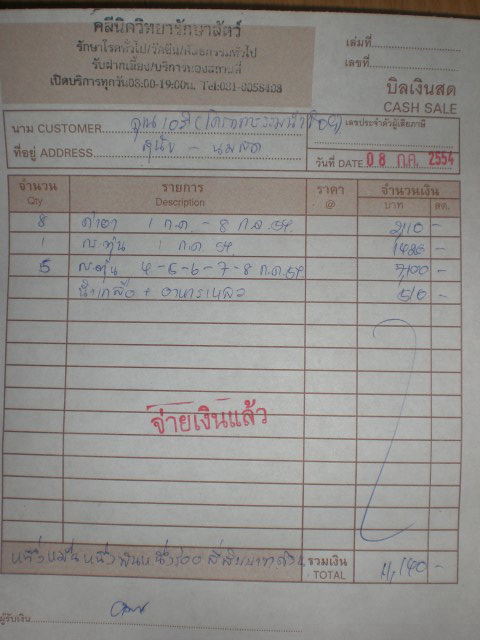 คลีนิควิทยารักษาสัตว์
รักษาโรคทั่วไป/วัคซีน/
รับฝากเลี้ยง/บริการนอกสถานที่
เปิดบริการทุกวัน08:00-19:00น. Tel:081-
เล่มที่
เลขที่
บิลเงินสด
CASH SALE
นาม CUSTOMER คุณ
เลขประจำตัวผู้เสียภาษี
ที่อยู่ ADDRESS
วันที่ DATE 08 ก.ค. 2554
จำนวน รายการ ราคา จำนวนเงิน
Qty Description @ บาท สต.
8 ค่ายา 1 ก.ค. - 8 ก.ค. 54 -
1 กระตุ้น 1 ก.ค. 54 -
5 กระตุ้น 4-5-6-7-8 ก.ค. 54 -
น้ำเกลือ + อาหารเหลว 510 -
จ่ายเงินแล้ว
หนึ่งหมื่นหนึ่งพันหนึ่งร้อยสี่สิบบาทถ้วน รวมเงิน
TOTAL 11,140 -
ผู้รับเงิน